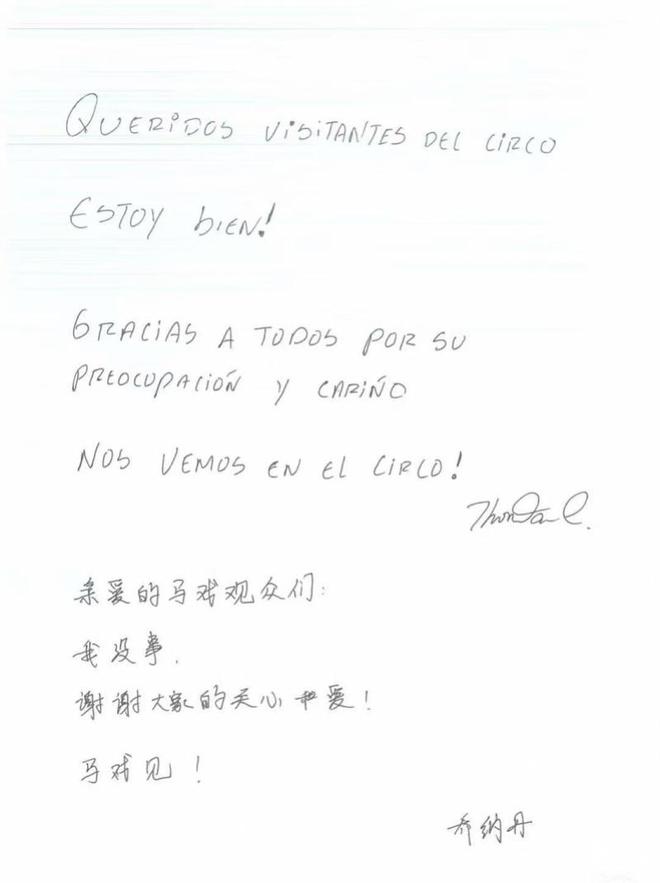 QUERIDOS VISITANTES DEL CIRCO
ESTOY BIEN!
GRACIAS A TODOS POR SU
PREOCUPACIÓN Y CARIÑO
NOS VEMOS EN EL CIRCO!
亲爱的马戏观众们:
我没事.
谢谢大家的关心和爱!
马戏见!
乔纳丹